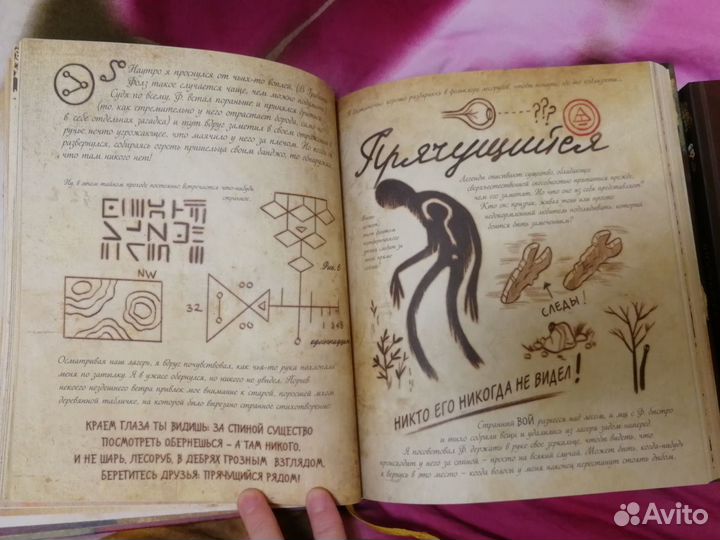 Наутро я проснулся от чьих-то воплей. (В Гравити
Фолз такое случается чаще, чем можно подумать.)
Судя по всему, Ф. встал пораньше и принялся бриться
(то, как стремительно у него отрастает борода, сама по
в себе отдельная загадка) и тут вдруг заметил в своём отражении в
ручье нечто угрожающее, что маячило у него за плечом. Но когда он
развернулся, собираясь огреть пришельца своим банджо, то обнаружил,
что там никого нет!
Ну, в этом тайном проходе постоянно встречается что-нибудь
странное.
NW
32
Рис. 6
1 2 4 8
Осматривая наш лагерь, я вдруг почувствовал, как чья-то рука похлопала
меня по затылку. Я в ужасе обернулся, но никого не увидел. Порыв
некоего нездешнего ветра привлёк мое внимание к старой, поросшей мхом
деревянной табличке, на которой было вырезано странное стихотворение:
КРАЕМ ГЛАЗА ТЫ ВИДИШЬ: ЗА СПИНОЙ СУЩЕСТВО
ПОСМОТРЕТЬ ОБЕРНЕШЬСЯ – А ТАМ НИКОГО,
И НЕ ШАРЬ, ЛЕСОРУБ, В ДЕБРЯХ ГРОЗНЫМ ВЗГЛЯДОМ,
БЕРЕГИТЕСЬ ДРУЗЬЯ: ПРЯЧУЩИЙСЯ РЯДОМ!
хорошо разбираюсь в фольклоре лесорубов, чтобы понять, где это
???
Прячущийся
Легенды описывают существо, обладающее
сверхъестественной способностью прятаться прежде,
чем его заметят. Но что оно из себя представляет?
Кто он: призрак, живая тень или просто
недокормленный любитель подглядывать, который
боится быть замеченным?
СЛЕДЫ!
НИКТО ЕГО НИКОГДА НЕ ВИДЕЛ!
Странный ВОЙ разнесся над лесом, и мы с Ф. быстро
и тихо собрали вещи и удалились из лагеря задом наперед.
Я посоветовал Ф. держать в руке свое зеркальце, чтобы видеть, что
происходит у него за спиной – просто на всякий случай. Может быть, когда-нибудь
я вернусь в это место – когда волосы у меня наконец перестанут стоять дыбом.
Avito